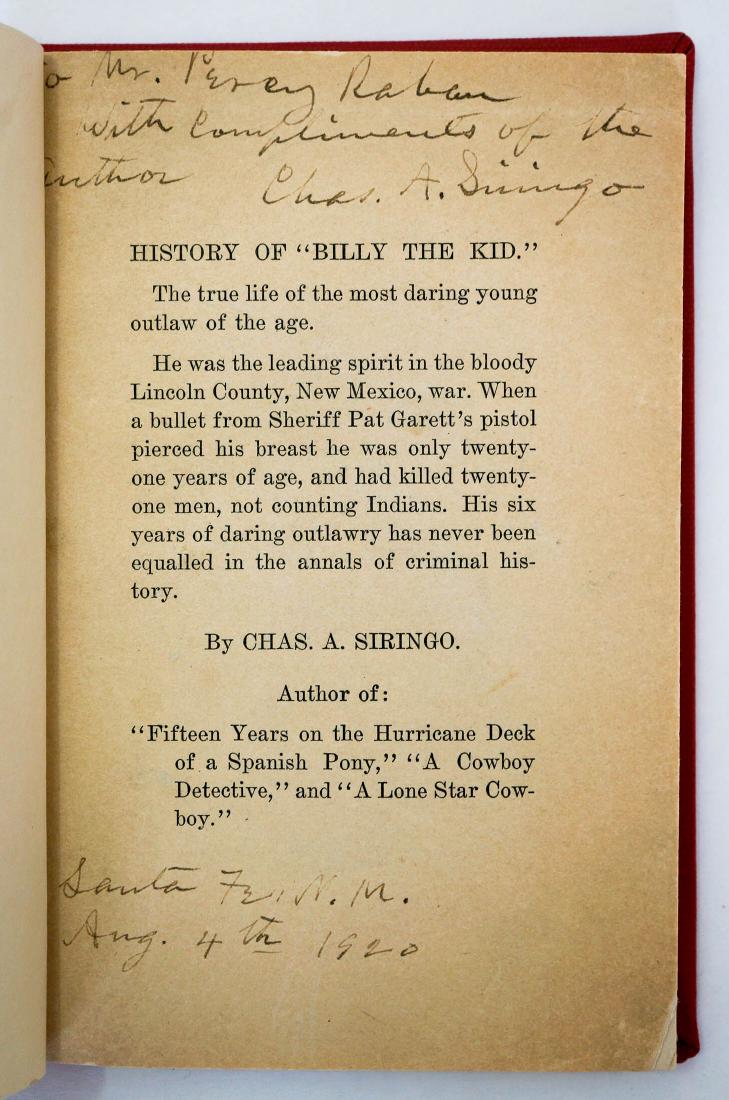 To Mr. Percy Raban
With Compliments of the
Author Chas. A. Siringo
HISTORY OF “BILLY THE KID.”
The true life of the most daring young
outlaw of the age.
He was the leading spirit in the bloody
Lincoln County, New Mexico, war. When
a bullet from Sheriff Pat Garett’s pistol
pierced his breast he was only twenty-
one years of age, and had killed twenty-
one men, not counting Indians. His six
years of daring outlawry has never been
equalled in the annals of criminal his-
tory.
By CHAS. A. SIRINGO.
Author of:
“Fifteen Years on the Hurricane Deck
of a Spanish Pony,” “A Cowboy
Detective,” and “A Lone Star Cow-
boy.”
Santa Fe, N. M.
Aug. 4th 1920